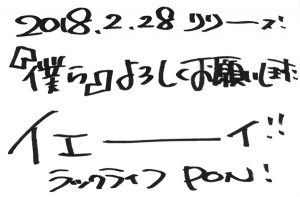 2018.2.28 リリース!
『僕ら』よろしくお願いします
イエーーーイ!!
ラックライフ PON!